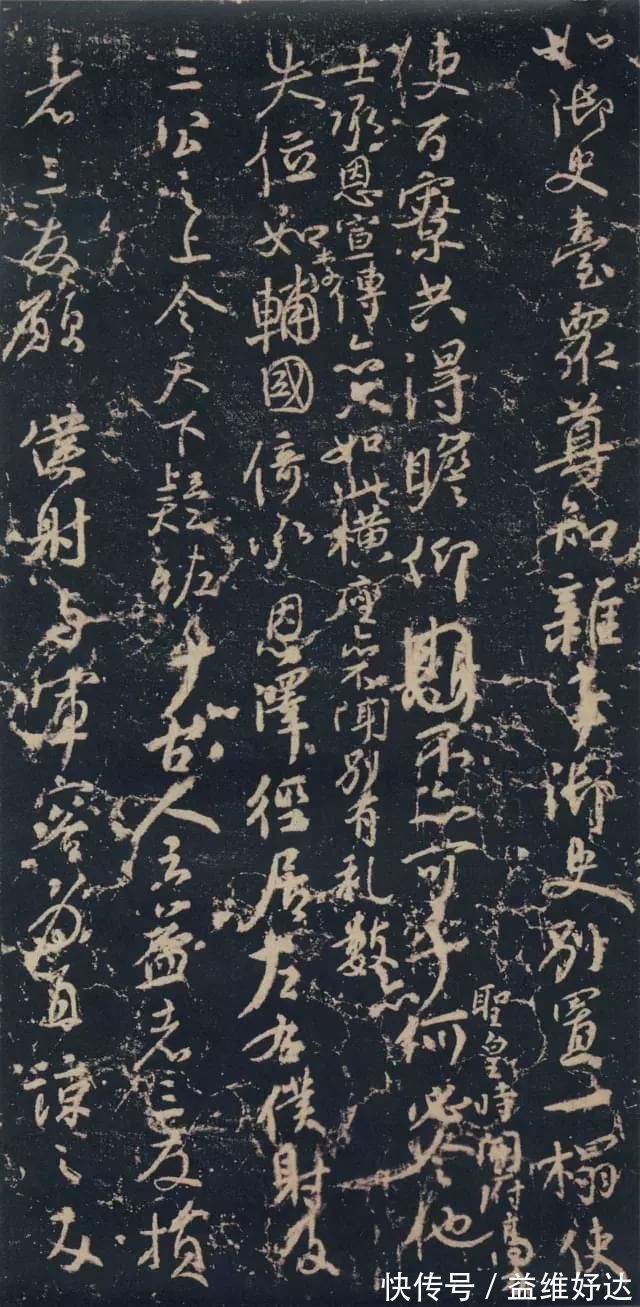 如御史臺衆尊知雜事御史別置一榻使
使百寮共得瞻仰不亦可乎何必令他
聖皇時開府高力
士承恩宣傳亦只如此橫座亦不聞別有礼數亦
失位如李輔國倚承恩澤徑居左右僕射及
三公之上令天下疑恠乎古人云益者三友損
者三友願僕射与軍容為直諒之友
快传号 / 益维好达